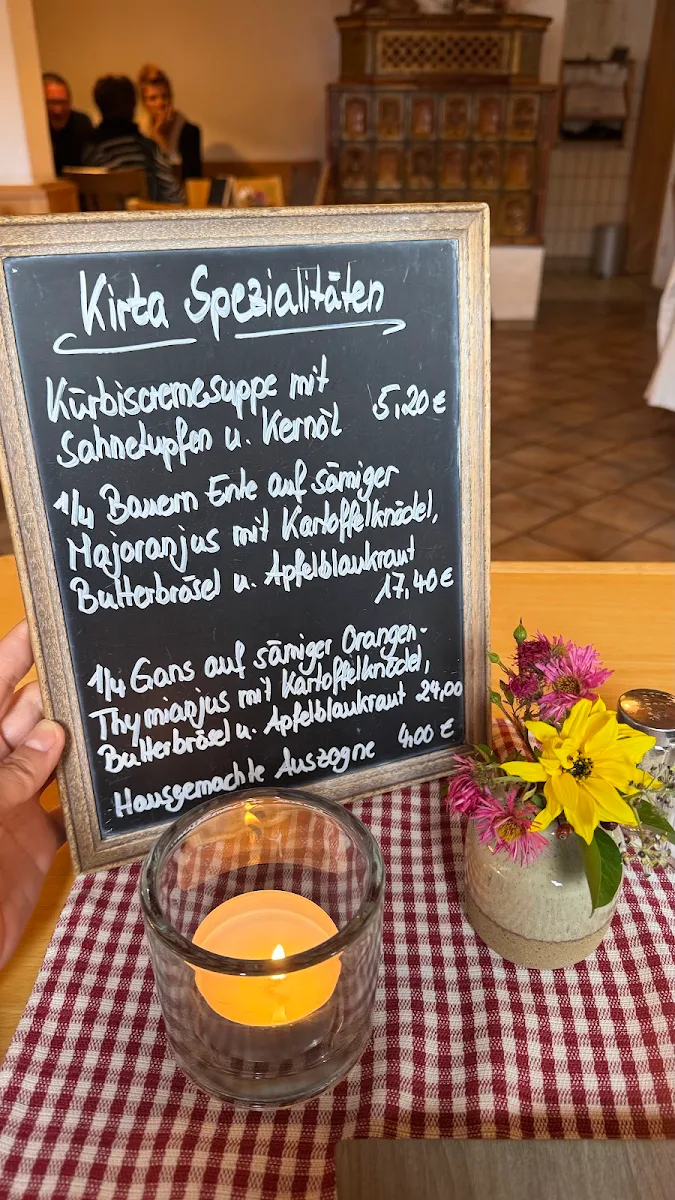 Kirta Spezialitäten
Kürbiscremesuppe mit
Sahnetupfen u. Kernöl 5,20 €
1/4 Bauern Ente auf sämiger
Majoranjus mit Kartoffelknödel,
Butterbrösel u. Apfelblaukraut
17,40 €
1/4 Gans auf sämiger Orangen-
Thymianjus mit Kartoffelknödel,
Butterbrösel u. Apfelblaukraut 24,00
Hausgemachte Auszogne 4,00 €